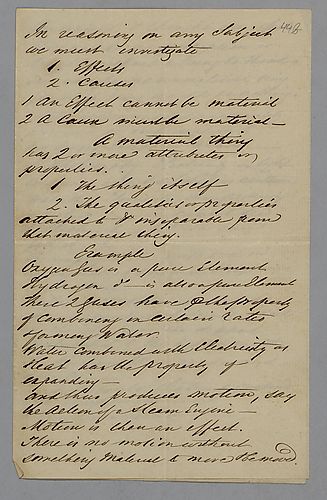 In reasoning on any Subject
we must investigate
1. Effects
2. Causes
1 An Effect cannot be material
2 A Cause must be material —
A material thing
has 2 or more attributes or
properties.
1 The thing itself
2. The qualities or properties
attached to & inseparable from
that material thing.
Example
Oxygen Gas is a pure Element
Hydrogen do is also a pure Element
These 2 gases have the property
of combining in certain rates
& forming Water.
Water combined with Electricity or
Heat has the property of
expanding —
and thus produces motion, say
the Action of a Steam Engine —
Motion is then an effect.
There is no motion without
something Material to move & be moved.